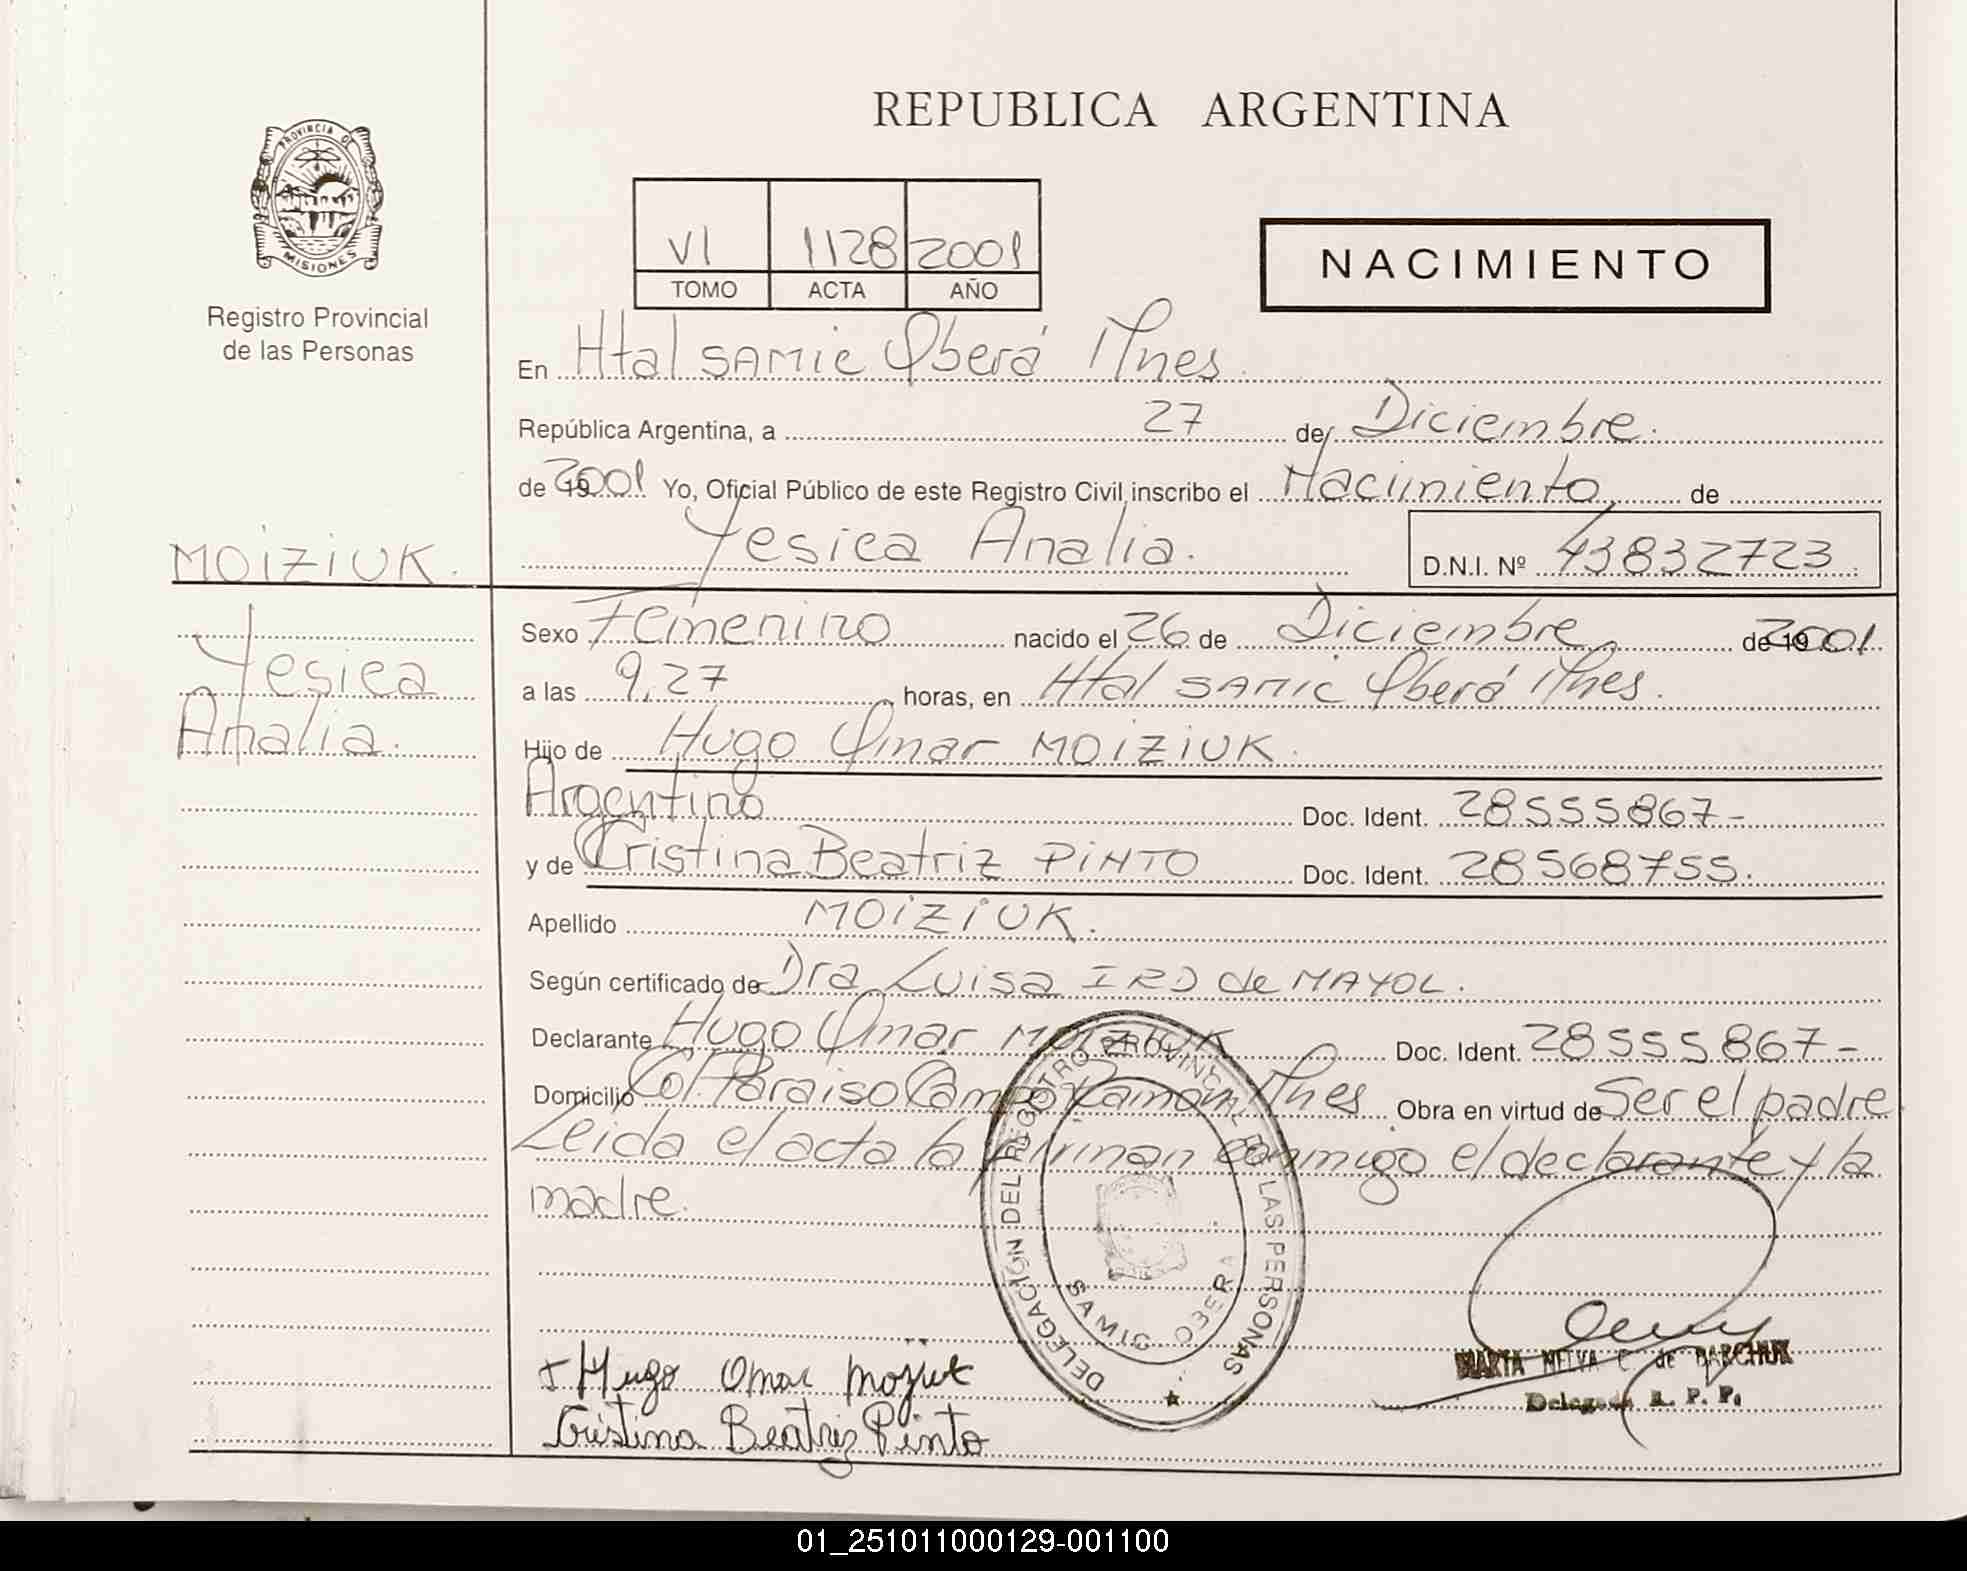 REPUBLICA ARGENTINA
PROVINCIA DE MISIONES
Registro Provincial
de las Personas
VI 1128 2001
TOMO ACTA AÑO
NACIMIENTO
En Htal SAMIC Oberá Mnes
República Argentina, a 27 de Diciembre
de 2001 Yo, Oficial Público de este Registro Civil inscribo el Nacimiento de
Yesica Analia. D.N.I. Nº 43832723
MOIZIUK.
Yesica
Analia.
Sexo Femenino nacido el 26 de Diciembre de 19 2001.
a las 9,27 horas, en Htal SAMIC Oberá Mnes.
Hijo de Hugo Omar MOIZIUK.
Argentino Doc. Ident. 28555867-
y de Cristina Beatriz PINTO Doc. Ident. 28568755.
Apellido MOIZIUK.
Según certificado de Dra Luisa IRD de MAYOL.
Declarante Hugo Omar MOIZIUK Doc. Ident. 28555867-
Domicilio Col. Paraiso Campo Ramón Mnes Obra en virtud de Ser el padre
Leida el acta la firman conmigo el declarante y la
madre.
DELEGACIÓN DEL REGISTRO PROVINCIAL DE LAS PERSONAS
SAMIC OBERA
Hugo Omar Moziuk
Cristina Beatriz Pinto
MARTA NELVA C de BARCHUK
Delegada R. P. P.
01_251011000129-001100